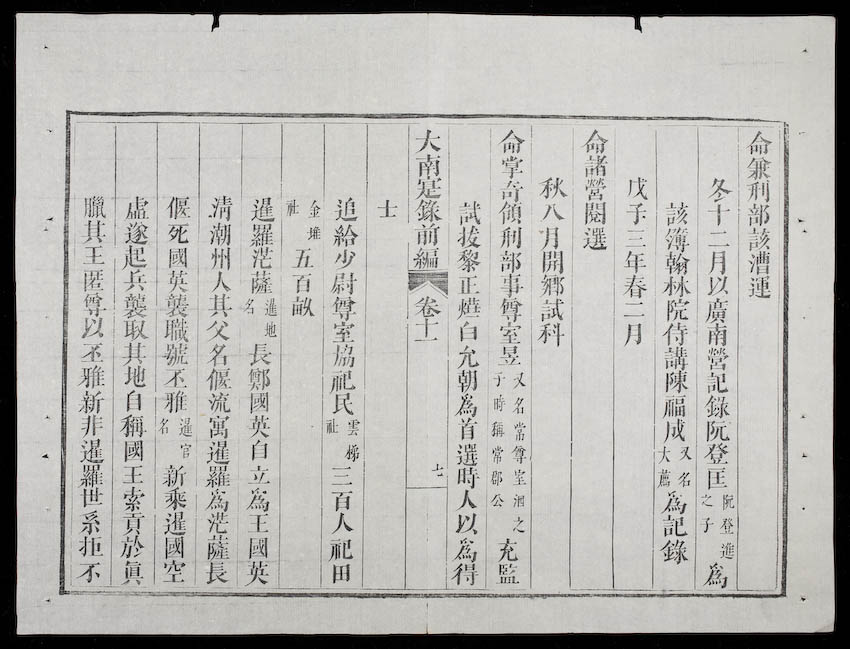 命兼刑部該漕運
冬十二月以廣南營記錄阮登匡阮登進之子爲
該簿翰林院侍講陳福成又名大薦爲記錄
戊子三年春二月
命諸營閱選
秋八月開鄉試科
命掌奇領刑部事尊室昱又名常尊室泗之子時稱常郡公充監
試拔黎正爀白允朝爲首選時人以爲得
大南寔錄前編 卷十一 十一
士
追給少尉尊室協祀民雲梯社三百人祀田
金堆社五百畝
暹羅茫薩暹地名長鄭國英自立爲王國英
清潮州人其父名偃流寓暹羅爲茫薩長
偃死國英襲職號丕雅暹官名新乘暹國空
虛遂起兵襲取其地自稱國王索貢於眞
臘其王匿尊以丕雅新非暹羅世系拒不